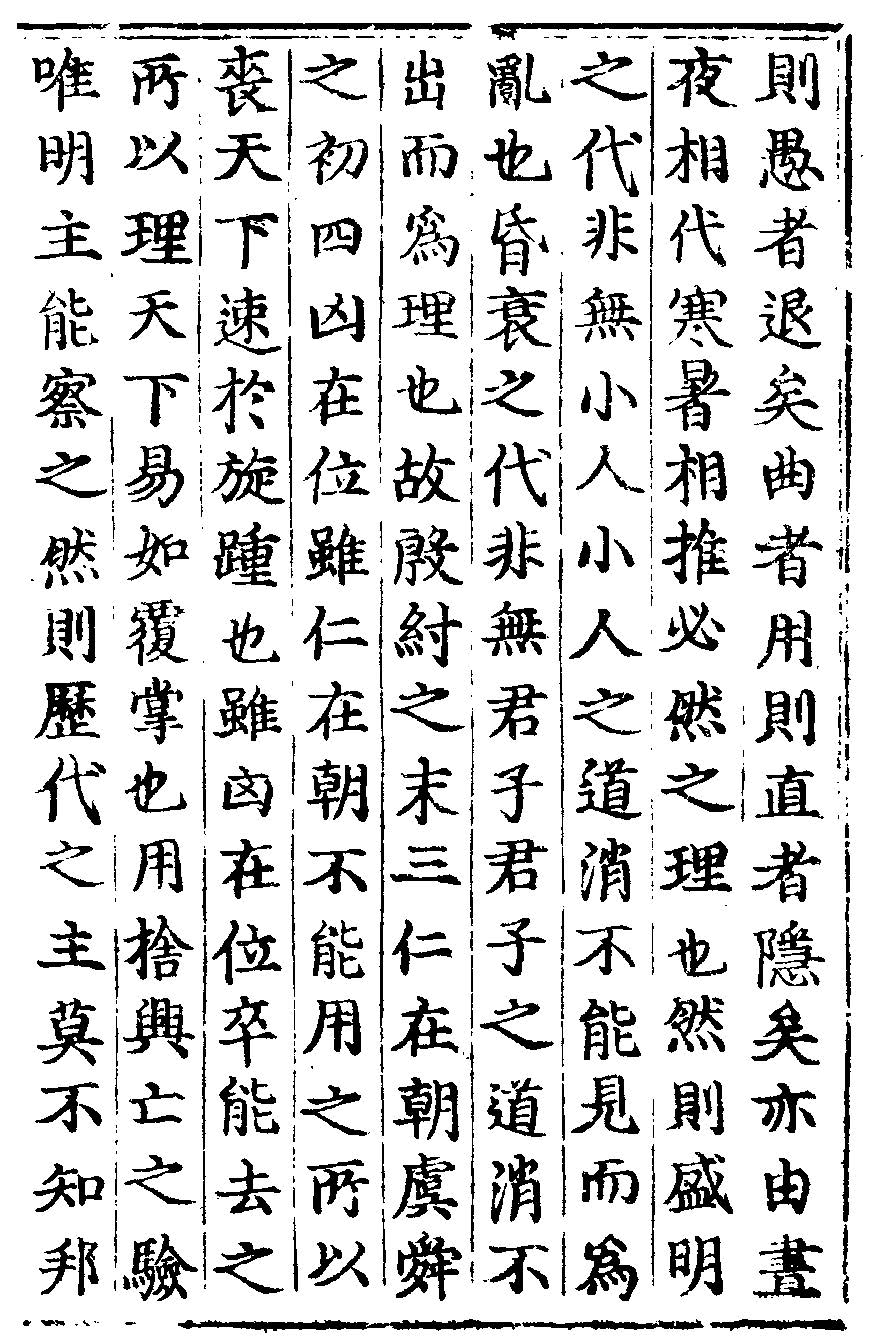 則愚者退矣曲者用則直者隱矣亦由晝
夜相代寒暑相推必然之理也然則盛明
之代非無小人小人之道消不能見而爲
亂也昏衰之代非無君子君子之道消不
出而爲理也故殷紂之末三仁在朝虞舜
之初四凶在位雖仁在朝不能用之所以
喪天下速於旋踵也雖凶在位卒能去之
所以理天下易如覆掌也用捨興亡之驗
唯明主能察之然則歷代之主莫不知邦